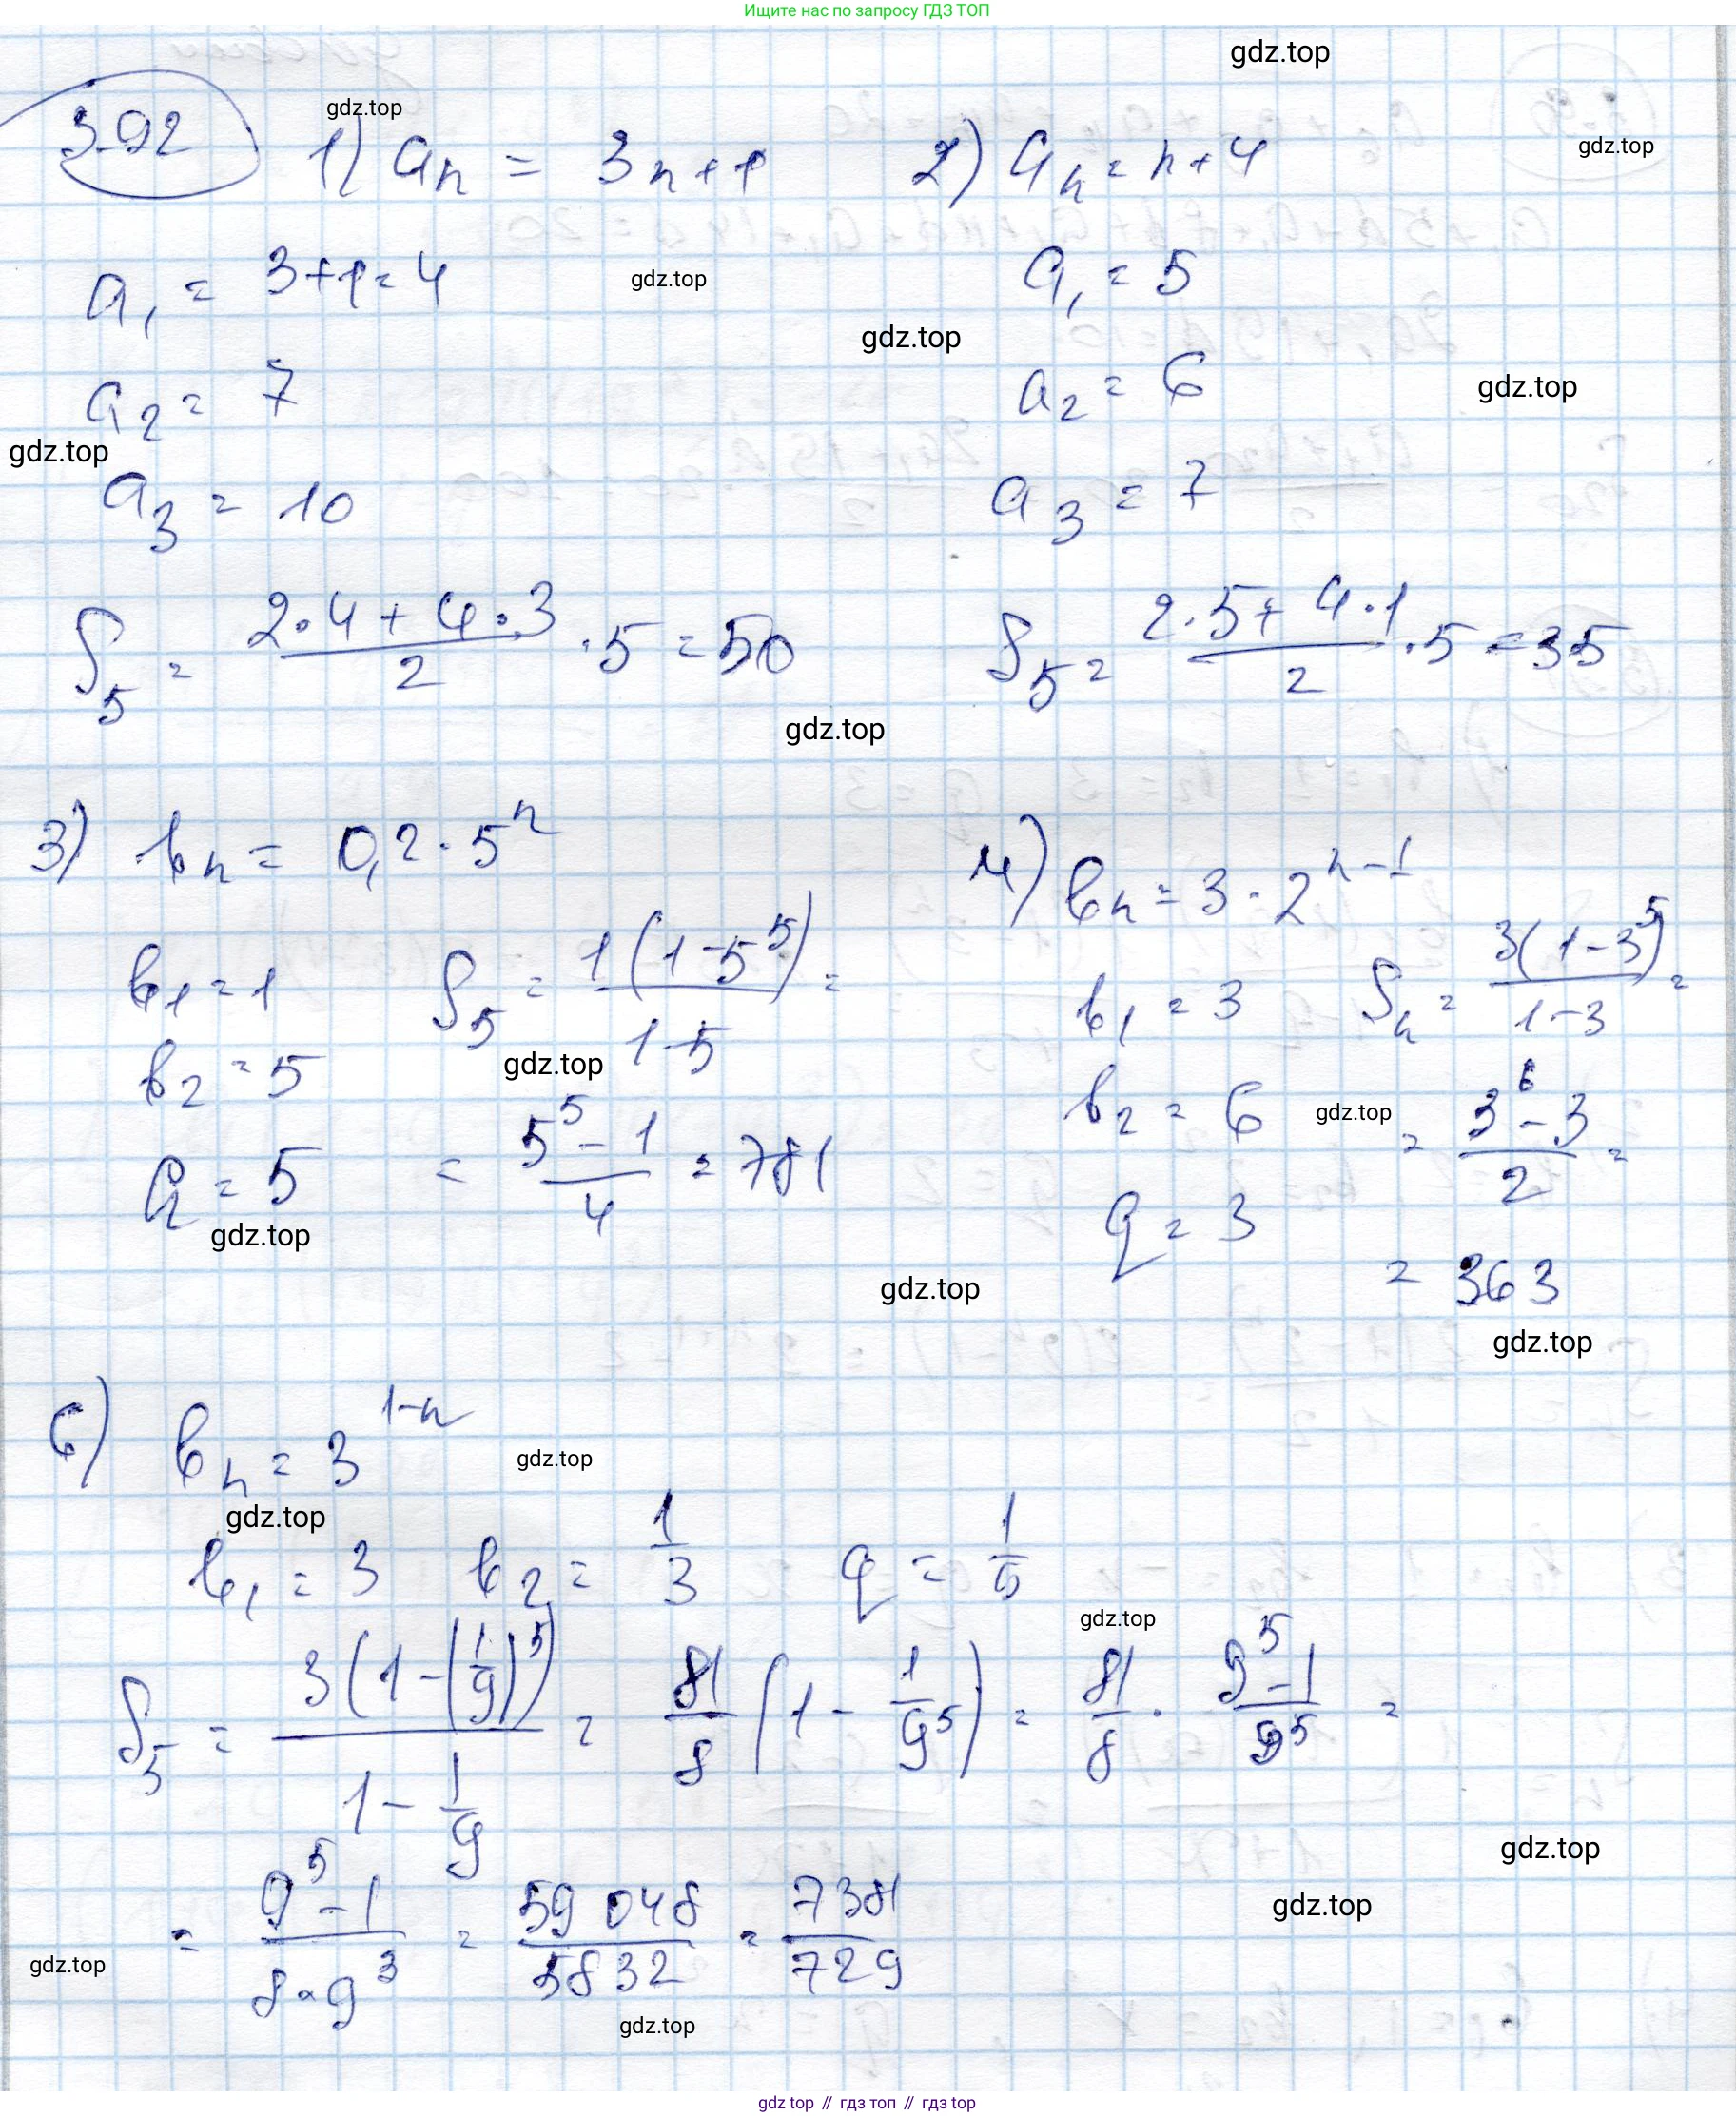 Ищите нас по запросу ГДЗ ТОП
gdz.top
392
gdz.top
1) aₙ = 3n+1
2) aₙ = n+4
gdz.top
a₁ = 3+1=4
gdz.top
a₁ = 5
gdz.top
a₂ = 7
a₂ = 6
gdz.top
gdz.top
a₃ = 10
a₃ = 7
S₅ = (2·4+4·3)/2 ·5 = 50
S₅ = (2·5+4·1)/2 ·5 = 35
gdz.top
3) bₙ = 0,2·5ⁿ
4) bₙ = 3·2ⁿ⁻¹
b₁ = 1
S₅ = 1(1-5⁵)/(1-5) =
b₁ = 3
Sₙ = 3(1-3⁵)/(1-3) =
b₂ = 5
gdz.top
b₂ = 6
gdz.top
= (3⁶-3)/2 =
q = 5
= (5⁵-1)/4 = 781
q = 3
gdz.top
gdz.top
= 363
gdz.top
6) bₙ = 3¹⁻ⁿ
gdz.top
gdz.top
b₁ = 3 b₂ = 1/3 q =
gdz.top
S₅ = 3(1-(1/9)⁵)/(1-1/9) = 81/8 (1-1/9⁵) = 81/8 · (9⁵-1)/9⁵ =
gdz.top
= (9⁵-1)/(8·9³) = 59 048/5832 = 7381/729
gdz.top
gdz.top
gdz.top
gdz top // гдз топ // гдз top